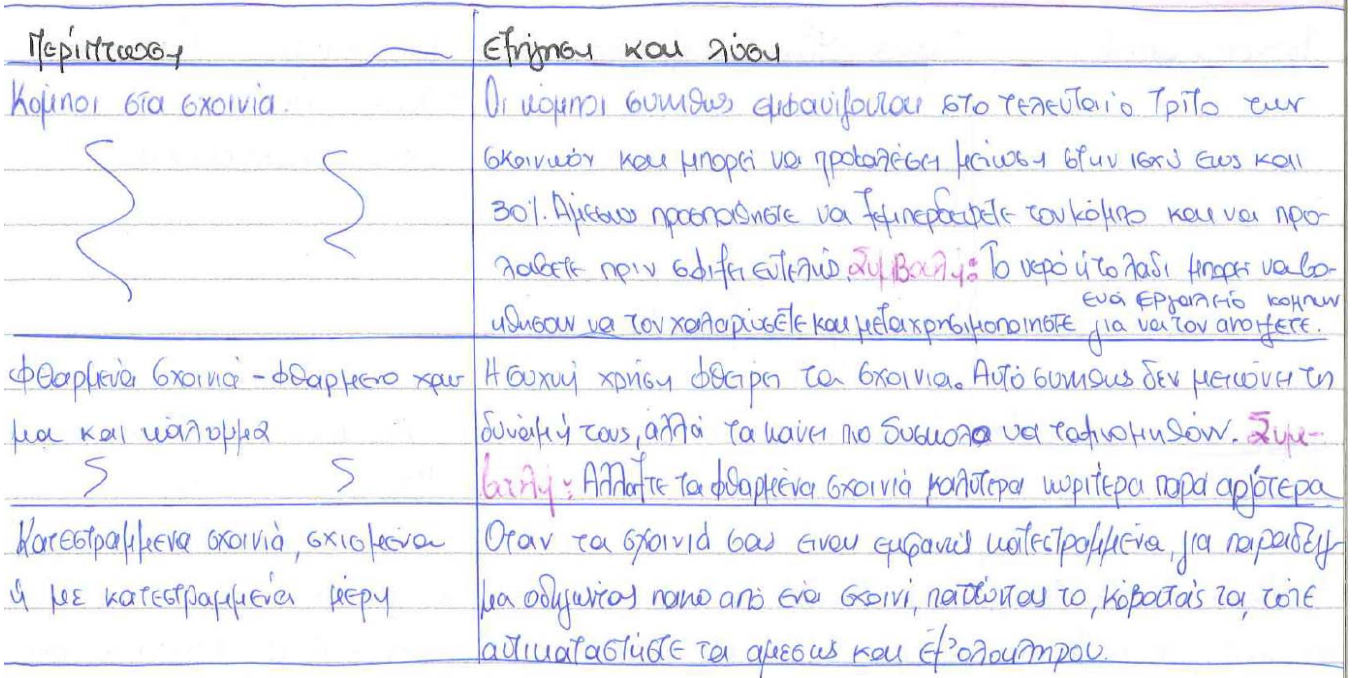 Περίπτωση Εξήγηση και λύση
Κόμποι στα σχοινιά. Οι κόμποι συνηθως εμφανίζονται στο τελευταίο τρίτο των
σκοινιών και μπορεί να προκαλέσει μείωση στην ισχύ εως και
30%. Αμέσως προσπαθήστε να ξεμπερδεψετε τον κόμπο και να προ-
λαβετε πριν σφιξει εντελώς. Συμβουλή: Το νερό ή το λαδι μπορεί να βο-
ηθησουν να τον χαλαρώσετε και μετα χρησιμοποιηστε ενα εργαλείο κομπων για να τον ανοιξετε.
Φθαρμενα σχοινιά - φθαρμενο χρω Η συχνή χρήση φθειρει τα σχοινια. Αυτό συνηθως δεν μειώνει τη
μα και κάλυμμα δύναμή τους, αλλά τα κανει πιο δυσκολα να ταξινομηθούν. Συμ-
βουλή: Αλλαξτε τα φθαρμένα σχοινιά καλύτερα νωρίτερα παρά αργότερα
Κατεστραμμενα σχοινιά, σχισμενα Οταν τα σχοινιά σας ειναι εμφανώς κατεστραμμένα, για παραδειγ
ή με κατεστραμμένα μέρη μα οδηγωντας πανω από ενα σκοινί, πατώντας το, κόβοντάς το, τότε
αντικαταστήστε τα αμεσως και εξ'ολοκληρου.